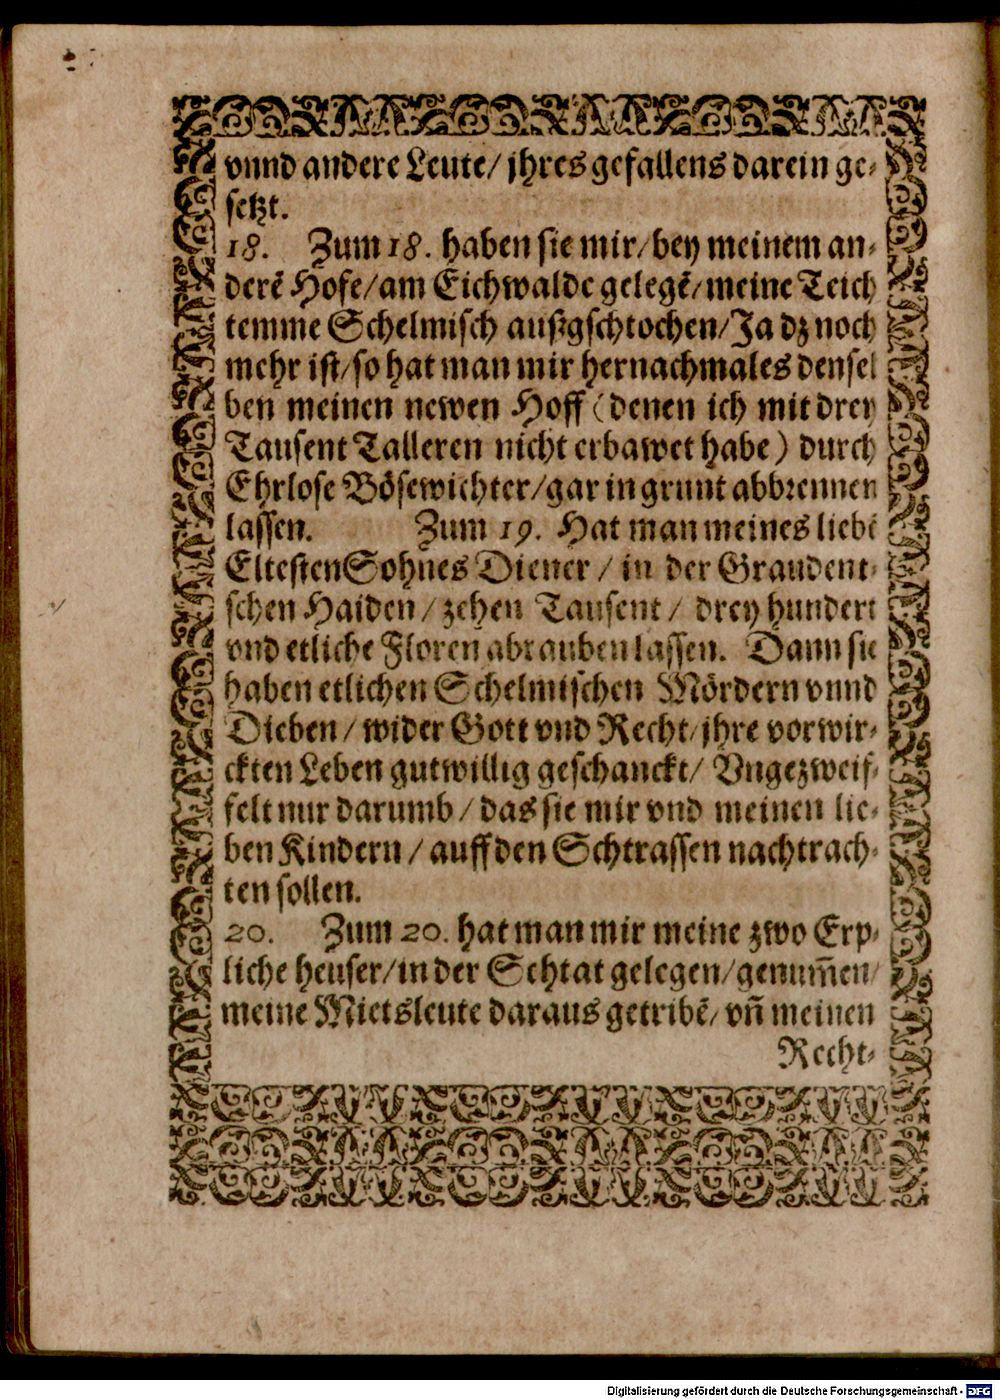 vnnd andere Leute/ jhres gefallens darein ge-
setzt.
18. Zum 18. haben sie mir/ bey meinem an-
derẽ Hofe/ am Eichwalde gelegẽ/ meine Teich
temme Schelmisch außgschtochen/ Ja dz noch
mehr ist/ so hat man mir hernachmales densel
ben meinen newen Hoff (denen ich mit drey
Tausent Talleren nicht erbawet habe) durch
Ehrlose Bösewichter/ gar in grunt abbrennen
lassen. Zum 19. Hat man meines liebẽ
Eltesten Sohnes Diener / in der Graudent-
schen Haiden / zehen Tausent / drey hundert
vnd etliche Floren abrauben lassen. Dann sie
haben etlichen Schelmischen Mördern vnnd
Dieben / wider Gott vnd Recht/ jhre vorwir-
ckten Leben gutwillig geschanckt/ Vngezweif-
felt nur darumb / das sie mir vnd meinen lie-
ben Kindern / auff den Schtrassen nachtrach-
ten sollen.
20. Zum 20. hat man mir meine zwo Erp-
liche heuser/ in der Schtat gelegen/ genum̃en/
meine Mietsleute daraus getribẽ/ vñ meinen
Recht-
Digitalisierung gefördert durch die Deutsche Forschungsgemeinschaft - DFG